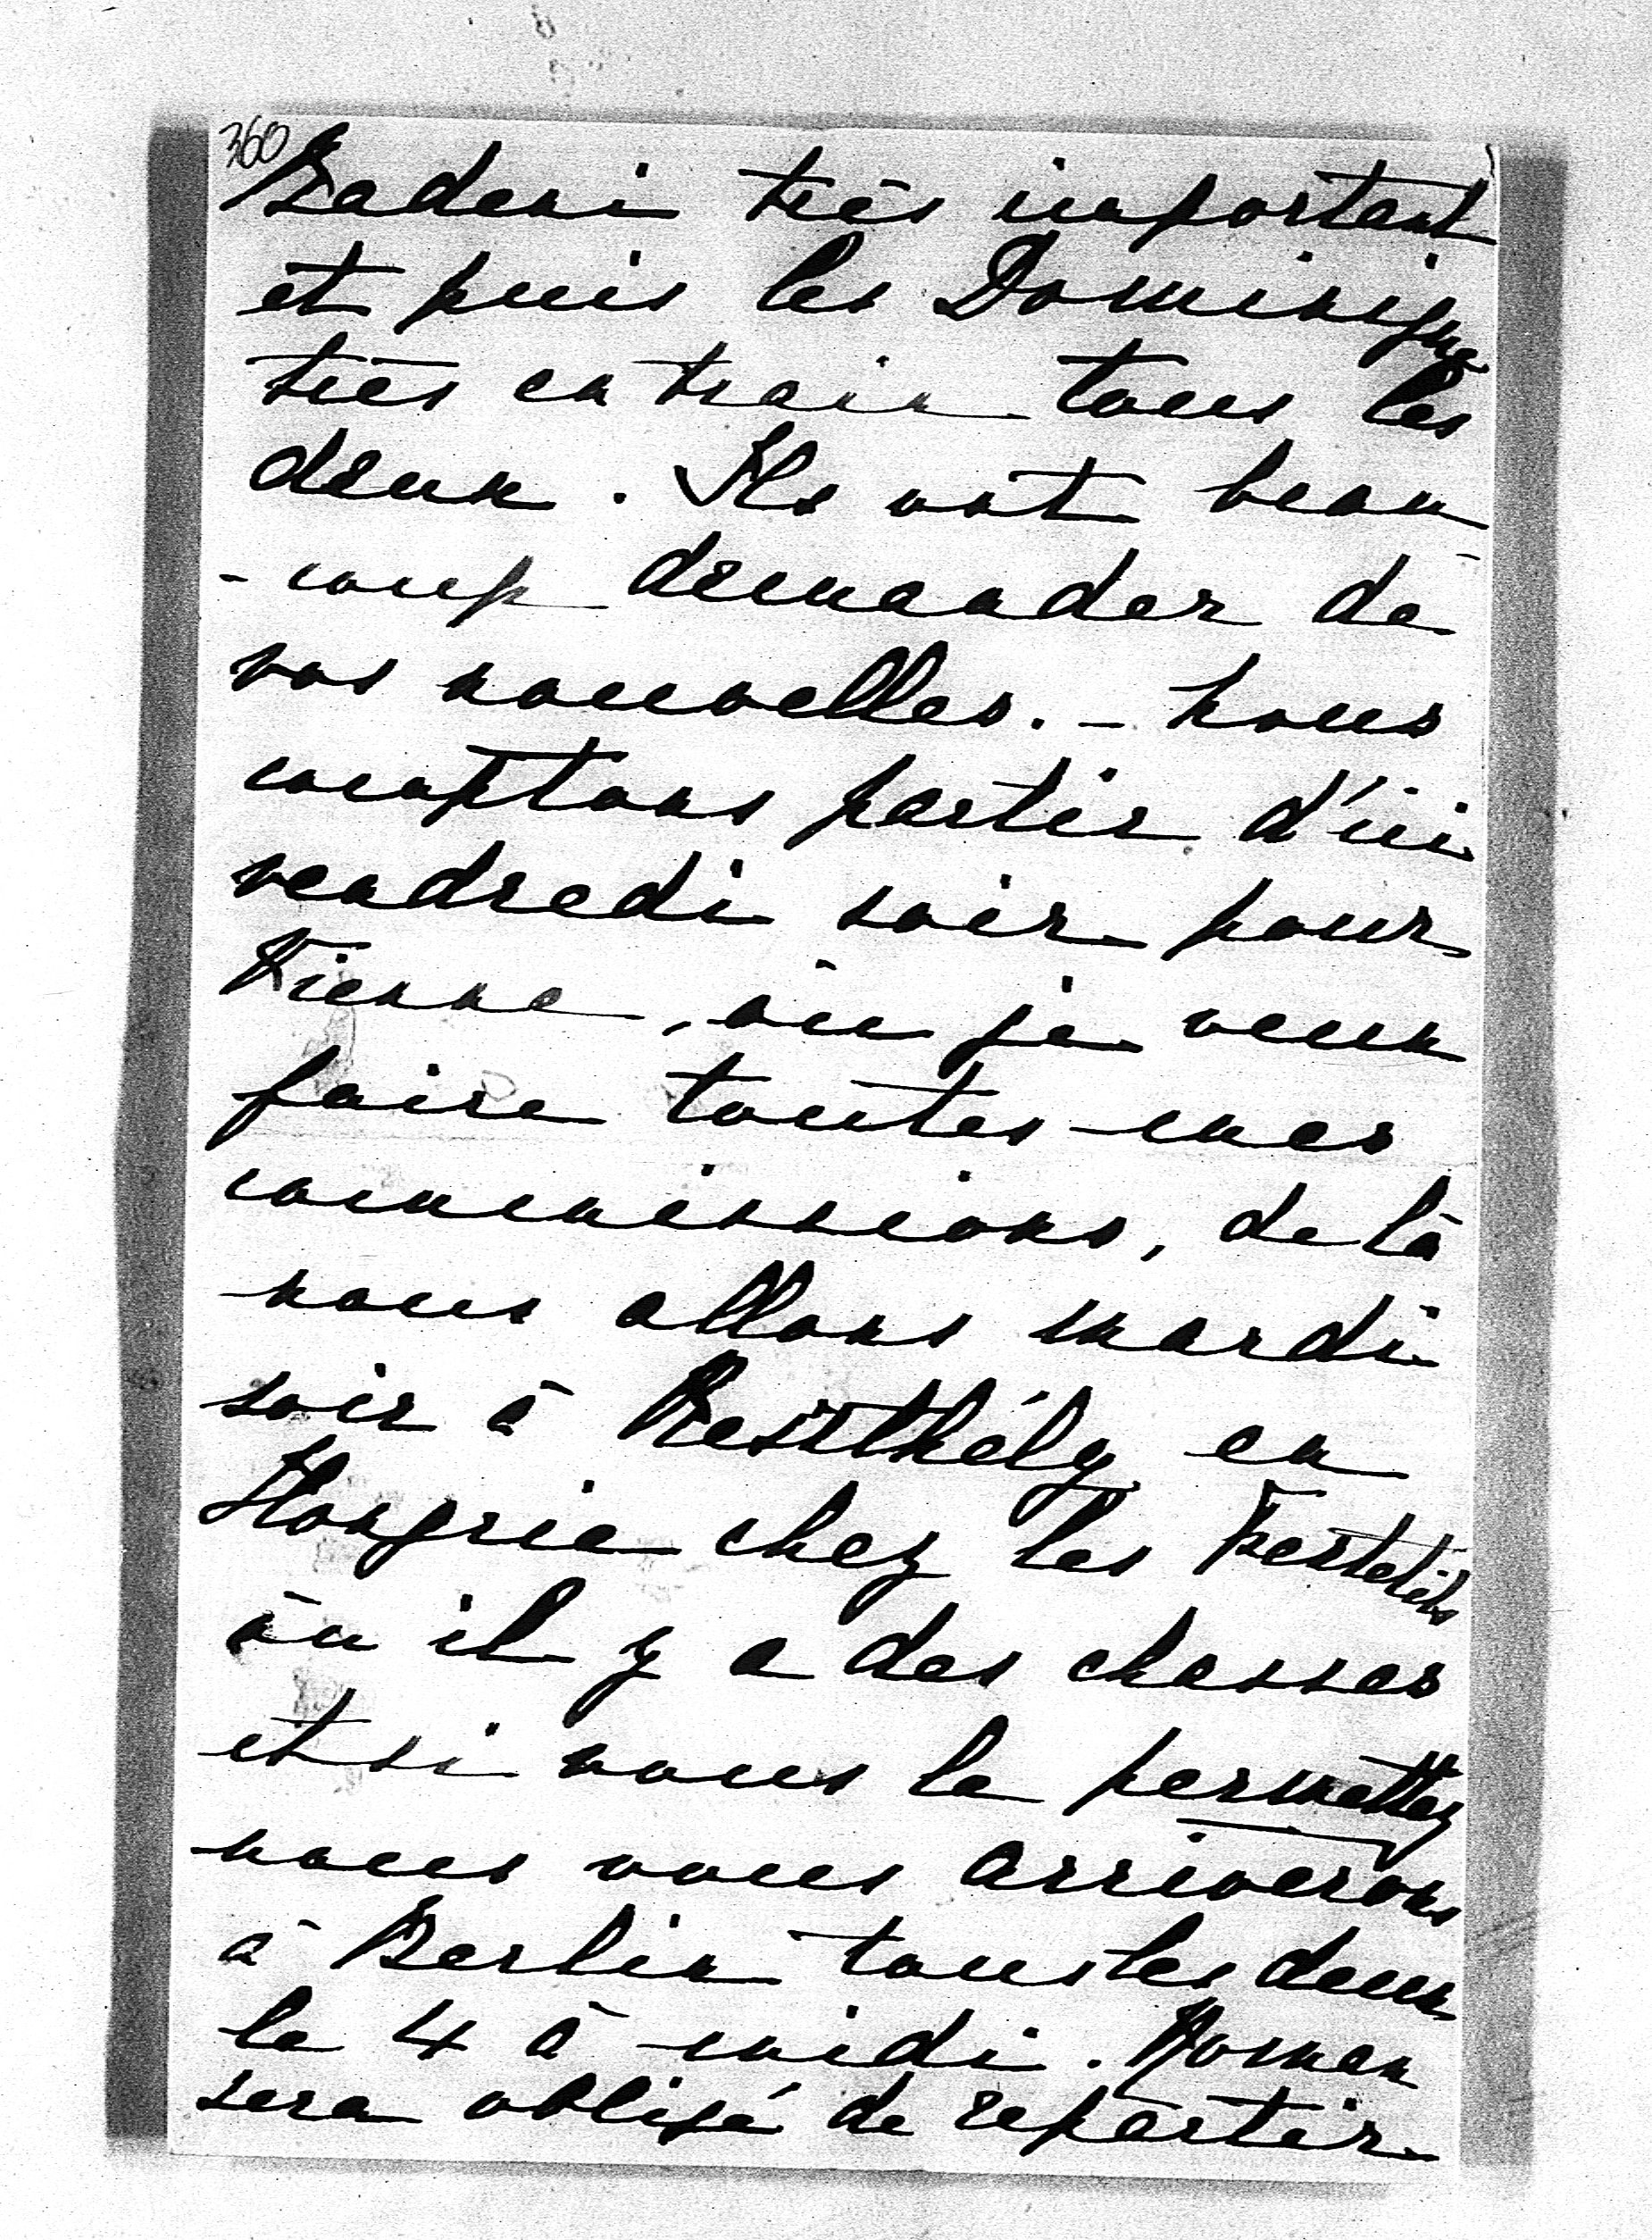 360
Badeni très important
et puis les Dominique
très en train tous les
deux. Ils ont beau
-coup demander de
vos nouvelles. - Nous
comptons partir d'ici
vendredi soir pour
Vienne, où je veux
faire toutes mes
commissions, de là
nous allons mardi
soir à Keszthély en
Hongrie chez les Festetics
où il y a des chasses
et si vous le permettez
nous vous arriverons
à Berlin tous les deux
le 4 à midi. Roman
sera obligé de repartir